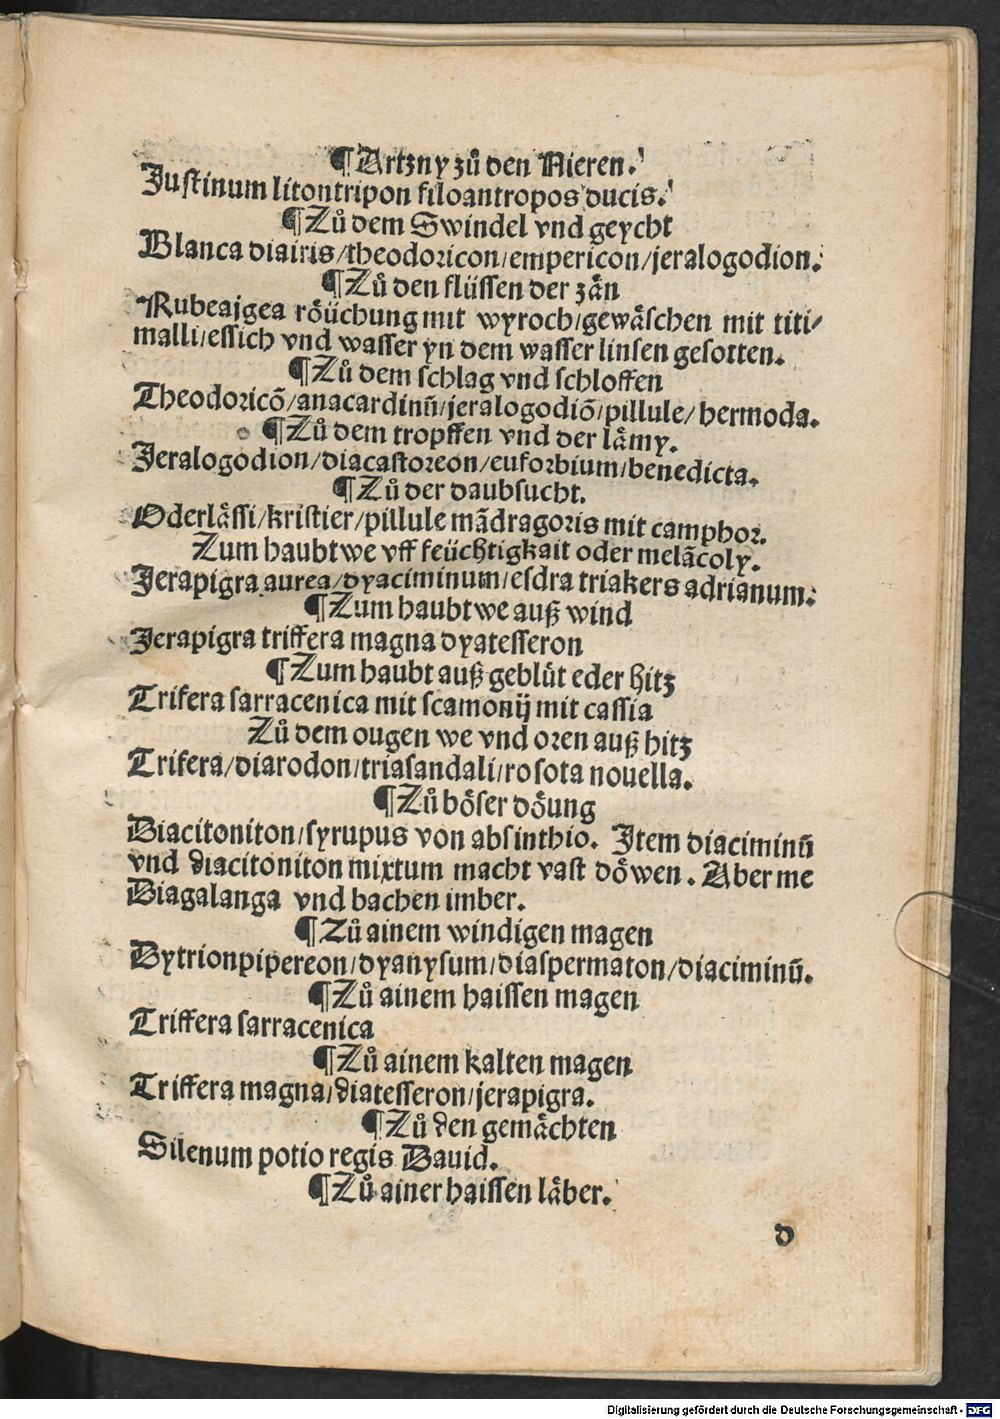 ¶Artzny zů den Nieren.
Justinum litontripon filoantropos ducis.
¶Zů dem Swindel vnd geycht
Blanca diairis/theodoricon/empericon/jeralogodion.
¶Zů den flüssen der zån
Rubeajgea röüchung mit wyroch/gewåschen mit titi/
malli/essich vnd wasser yn dem wasser linsen gesotten.
¶Zů dem schlag vnd schloffen
Theodoricõ/anacardinũ/jeralogodiõ/pillule/hermoda.
¶Zů dem tropffen vnd der låmy.
Jeralogodion/diacastoreon/euforbium/benedicta.
¶Zů der daubsucht.
Oderlåssi/kristier/pillule mãdragoris mit camphor.
Zum haubtwe vff feüchtigkait oder melãcoly.
Jerapigra aurea/dyaciminum/esdra triakers adrianum.
¶Zum haubtwe auß wind
Jerapigra triffera magna dyatesseron
¶Zum haubt auß geblüt eder hitz
Trifera sarracenica mit scamonij mit cassia
Zů dem ougen we vnd oren auß hitz
Trifera/diarodon/triasandali/rosota nouella.
¶Zů böser döung
Diacitoniton/syrupus von absinthio. Item diaciminũ
vnd diacitoniton mixtum macht vast döwen. Aber me
Diagalanga vnd bachen imber.
¶Zů ainem windigen magen
Dytrionpipereon/dyanysum/diaspermaton/diaciminũ.
¶Zů ainem haissen magen
Triffera sarracenica
¶Zů ainem kalten magen
Triffera magna/diatesseron/jerapigra.
¶Zů den gemåchten
Silenum potio regis Dauid.
¶Zů ainer haissen låber.
d
Digitalisierung gefördert durch die Deutsche Forschungsgemeinschaft - DFG